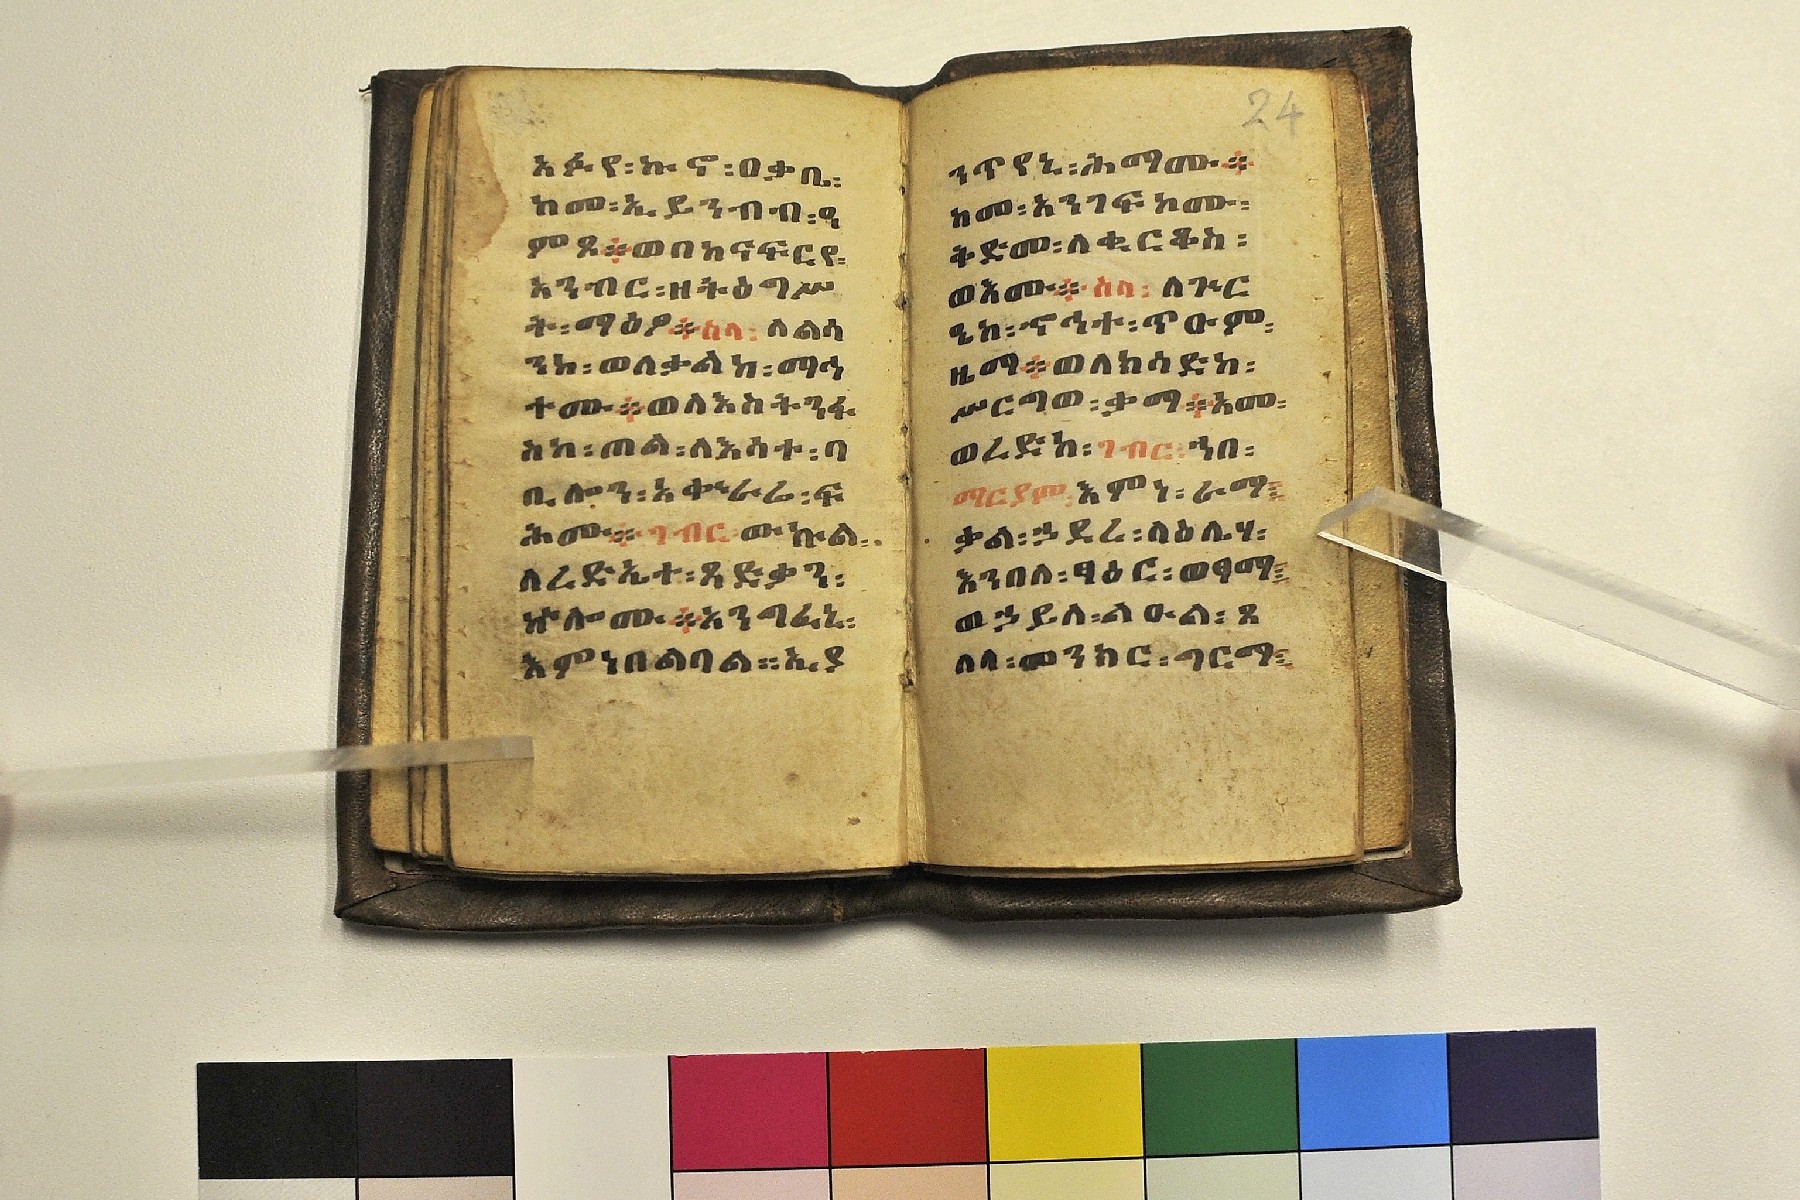 አፉየ፡ኩኖ፡በቃቢ፡
ከመ፡ኢይንብብ፡ዒ
ምፃ፨ወበከናፍርየ፡
አንብር፡ዘትዕግሥ
ት፡ማዕፆ፨ሰላ፡ለልሳ
ንከ፡ወለቃልከ፡ማኅ
ተሙ፨ወለእስትንፋ
ስከ፡ጠል፡ለእሳተ፡ባ
ቢሎን፡አቀኍራሬ፡ፍ
ሕሙ፨ገብር፡ሙኩል፡
ለረድኤተ፡ጻድቃን፡
ኵሎሙ፨አንግፈኒ፡
እምነበልባል፡፡ኢያ
24
ንጥየኒ፡ሕማሙ፨
ከመ፡አንገፍኮሙ፡
ትድመ፡ለቂርቆስ፡
ወእሙ፨ሰላ፡ለጕር
ዔከ፡ኆኅተ፡ጥዑም፡
ዜማ፨ወለክሳድከ፡
ሥርግወ፡ቃማ፨አመ፡
ወረድከ፡ገብር፡ኀበ፡
ማርያም፡እምነ፡ራማ፤
ቃል፡ኃደረ፡ላዕሌሃ፡
እንበለ፡ፃዕር፡ወፃማ፤
ወኃይለ፡ልዑል፡ጸ
ለላ፡መንክር፡ግርማ፤